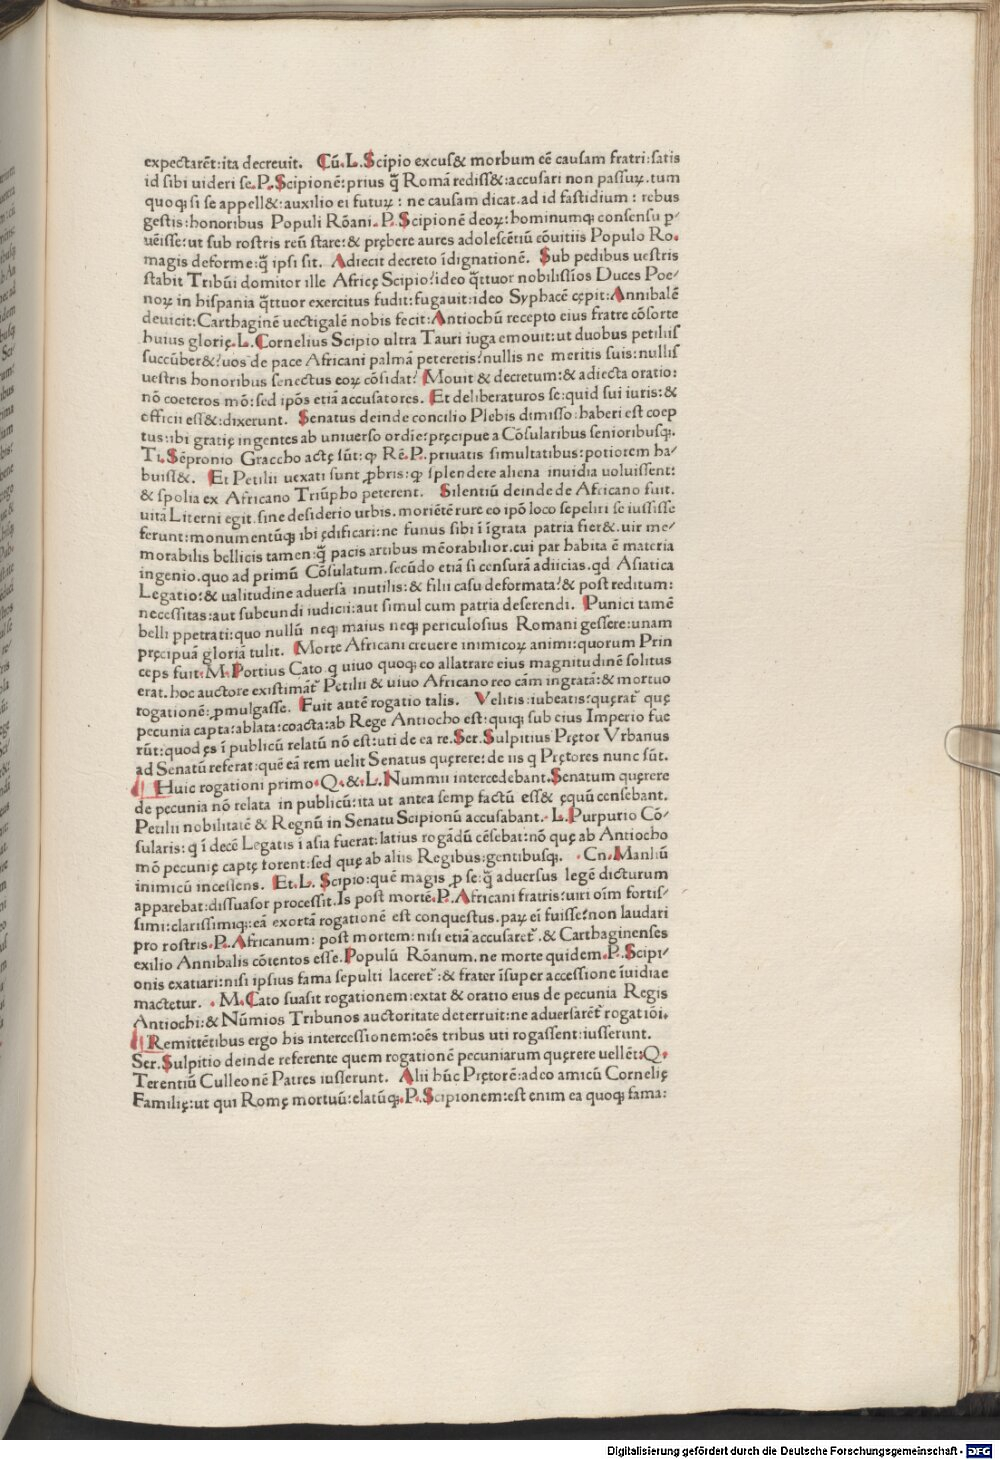 expectarēt:ita decreuit. Cū.L.Scipio excus& morbum eē causam fratri:satis
id sibi uideri se.P.Scipionē:prius q̄ Romā rediss&:accusari non passuꝝ.tum
quoqꝫ si se appell&:auxilio ei futuꝝ : ne causam dicat.ad id fastidium : rebus
gestis:honoribus Populi Rōani.P.Scipionē deoꝝ:hominumqꝫ consensu p-
uēisse:ut sub rostris reū stare:& prębere aures adolescētiū cōuitiis Populo Ro.
magis deforme:q̄ ipsi sit. Adiecit decreto īdignationē. Sub pedibus uestris
stabit Tribūi domitor ille Africę Scipio?ideo q̄ttuor nobilissīos Duces Poe-
noꝝ in hispania q̄ttuor exercitus fudit:fugauit:ideo Syphacē cępit:Annibalē
deuicit:Carthaginē uectigalē nobis fecit:Antiochū recepto eius fratre cōsorte
huius glorię.L.Cornelius Scipio ultra Tauri iuga emouit:ut duobus petiliis
succūber&?uos de pace Africani palmā peteretis?nullis ne meritis suis:nullis
uestris honoribus senectus eoꝝ cōsidat? Mouit & decretum:& adiecta oratio:
nō coeteros mō:sed ipōs etiā accusatores. Et deliberaturos se:quid sui iuris:&
efficii ess&:dixerunt. Senatus deinde concilio Plebis dimisso:haberi est coep
tus:ibi gratię ingentes ab uniuerso ordie:pręcipue a Cōsularibus senioribusqꝫ.
Ti.Sēpronio Graccho actę sūt:ꝙ Rē.P.priuatis simultatibus:potiorem ha-
buiss&. Et Petilii uexati sunt ꝓbris:ꝙ splendere aliena inuidia uoluissent:
& spolia ex Africano Triūpho peterent. Silentiū deinde de Africano fuit.
uitā Literni egit.sine desiderio urbis.moriētē rure eo ipō loco sepeliri se iussisse
ferunt:monumentūqꝫ ibi ędificari:ne funus sibi ī īgrata patria fier&.uir me-
morabilis bellicis tamen:q̄ pacis artibus mēorabilior.cui par habita ē materia
ingenio.quo ad primū Cōsulatum.secūdo etiā si censurā adiicias.qd Asiatica
Legatio:& ualitudine aduersa inutilis:& filii casu deformata?& post reditum:
necessitas:aut subeundi iudicii:aut simul cum patria deserendi. Punici tamē
belli ppetrati:quo nullū neqꝫ maius neqꝫ periculosius Romani gessere:unam
pręcipuā gloriā tulit. Morte Africani creuere inimicoꝝ animi:quorum Prin
ceps fuit.M.Portius Cato q uiuo quoqꝫ eo allatrare eius magnitudinē solitus
erat.hoc auctore existimāt Petilii & uiuo Africano reo cām ingratā:& mortuo
rogationē:ꝓmulgasse. Fuit autē rogatio talis. Velitis:iubeatis:quęrat quę
pecunia capta:ablata:coacta:ab Rege Antiocho est:quiqꝫ sub eius Imperio fue
rūt:quod ęs ī publicū relatū nō est:uti de ea re.Ser.Sulpitius Prętor Vrbanus
ad Senatū referat:quē eā rem uelit Senatus quęrere:de iis q Prętores nunc sūt.
Huic rogationi primo.Q.&.L.Nummii intercedebant.Senatum quęrere
de pecunia nō relata in publicū:ita ut antea semp factū ess& ęquū censebant.
Petilii nobilitatē & Regnū in Senatu Scipionū accusabant.L.Purpurio Cō-
sularis:q ī decē Legatis ī asia fuerat:latius rogādū cēsebat:nō quę ab Antiocho
mō pecunię captę forent:sed quę ab aliis Regibus:gentibusqꝫ. .Cn.Manliū
inimicū incessens. Et.L.Scipio:quē magis ꝓ se:q̄ aduersus legē dicturum
apparebat:dissuasor processit.Is post mortē.P.Africani fratris:uiri oīm fortis-
simi:clarissimiqꝫ:eā exortā rogationē est conquestus.paꝝ eī fuisse?non laudari
pro rostris.P.Africanum: post mortem:nisi etiā accusaret.& Carthaginenses
exilio Annibalis cōtentos esse.Populū Rōanum.ne morte quidem.P.Scipi-
onis exatiari:nisi ipsius fama sepulti laceret:& frater īsuper accessione īuidiae
mactetur. .M.Cato suasit rogationem:extat & oratio eius de pecunia Regis
Antiochi:& Nūmios Tribunos auctoritate deterruit:ne aduersarēt rogatiōi.
Remittētibus ergo his intercessionem:oēs tribus uti rogassent:iusserunt.
Ser.Sulpitio deinde referente quem rogationē pecuniarum quęrere uellēt:Q.
Terentiū Culleonē Patres iusserunt. Alii hūc Prętorē:adeo amicū Cornelię
Familię:ut qui Romę mortuū:elatūqꝫ.P.Scipionem:est enim ea quoqꝫ fama:
Digitalisierung gefördert durch die Deutsche Forschungsgemeinschaft - DFG